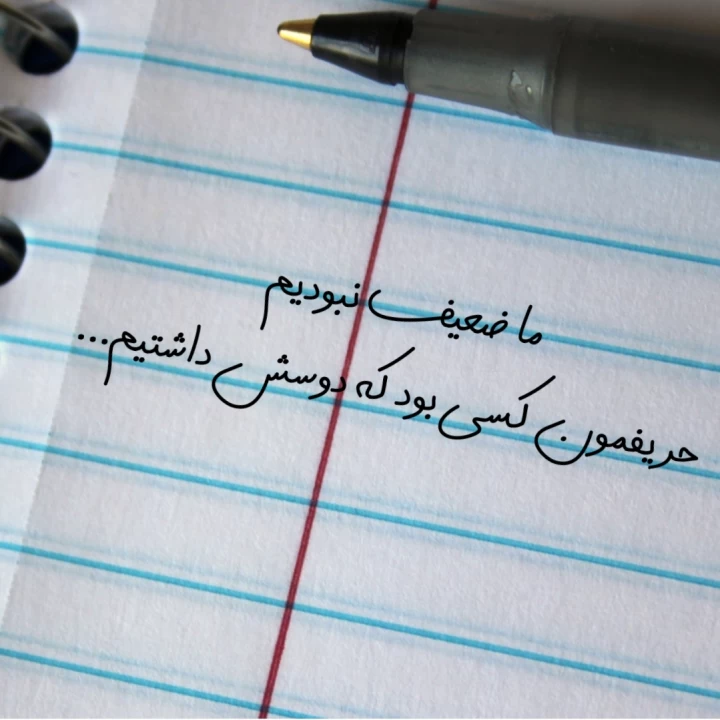 ما ضعیف نبودیم
حریفمون کسی بود که دوسش داشتیم...